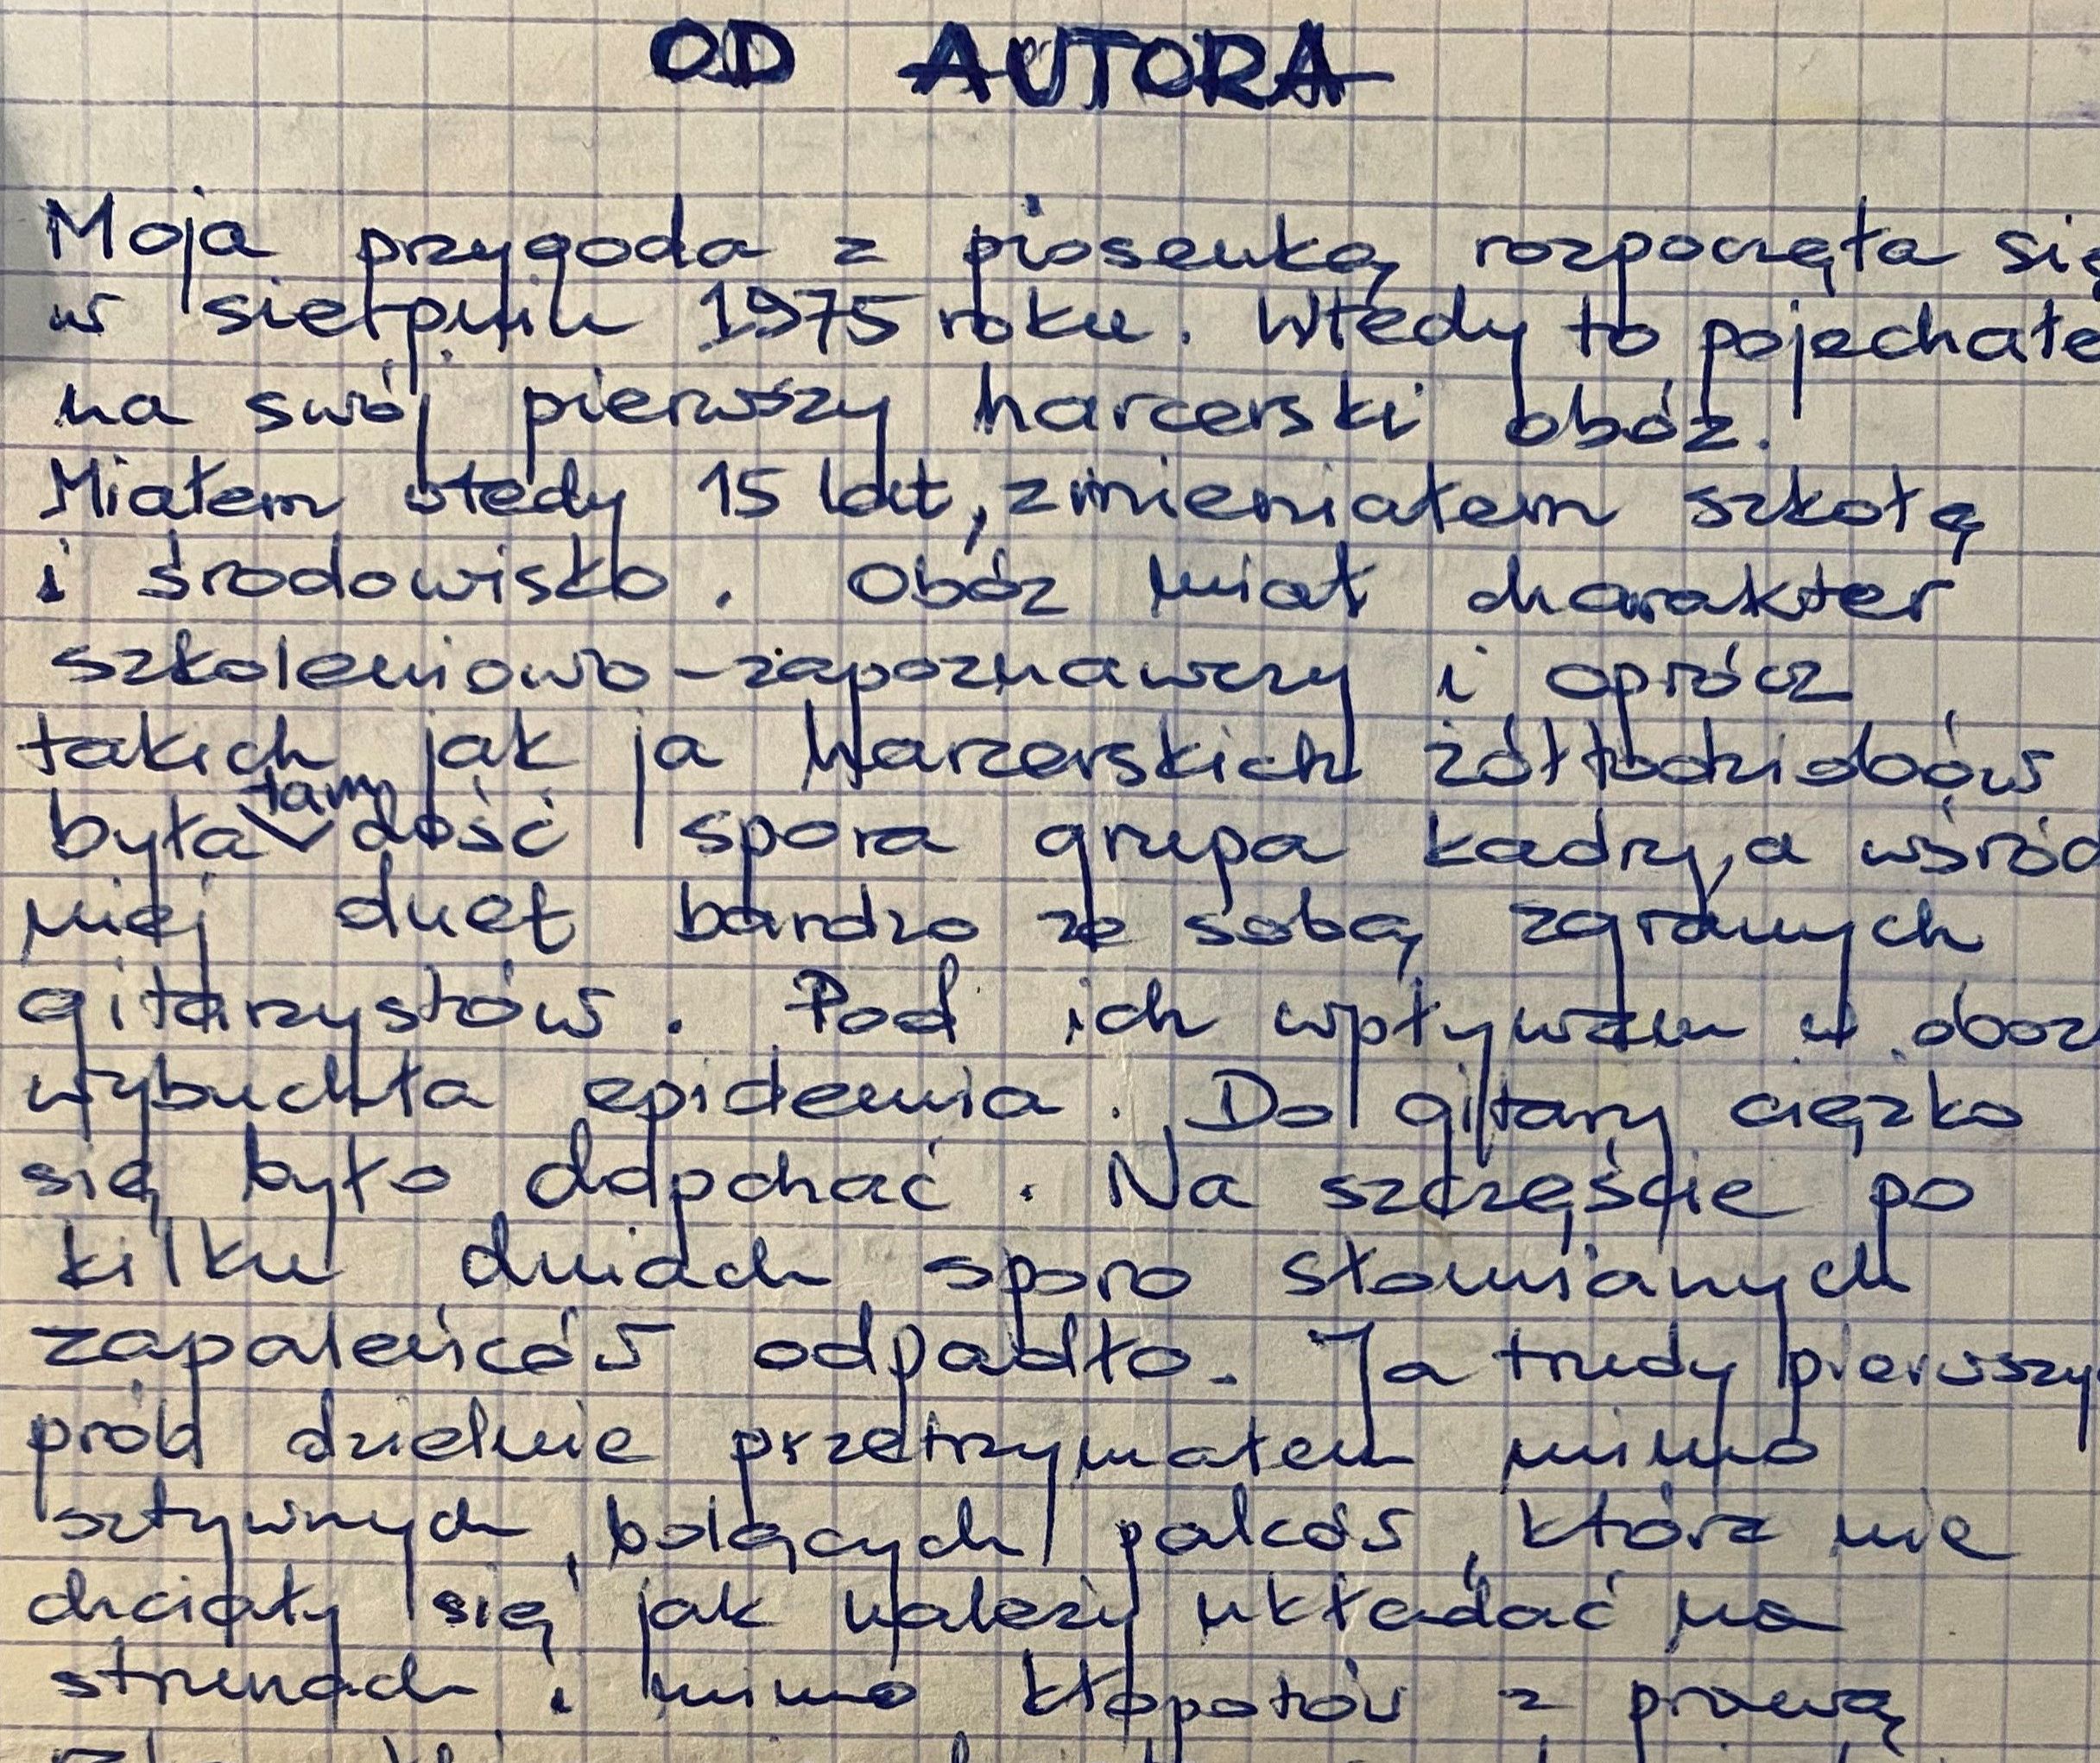 OD AUTORA
Moja przygoda z piosenką rozpoczęła się
w sierpniu 1975 roku. Wtedy to pojechałe
na swój pierwszy harcerski obóz.
Miałem wtedy 15 lat, zmieniałem szkołę
i środowisko. Obóz miał charakter
szkoleniowo-zapoznawczy i oprócz
takich jak ja harcerskich żółtodziobów
była tam dość spora grupa kadry, a wśród
niej duet bardzo ze sobą zgranych
gitarzystów. Pod ich wpływem w oboz
wybuchła epidemia. Do gitary ciężko
się było dopchać. Na szczęście po
kilku dniach sporo słomianych
zapaleńców odpadło. Ja trudy pierwszy
prób dzielnie przetrzymałem mimo
sztywnych, bolących palców, które nie
chciały się jak należy układać na
strunach i mimo kłopotów z prawą